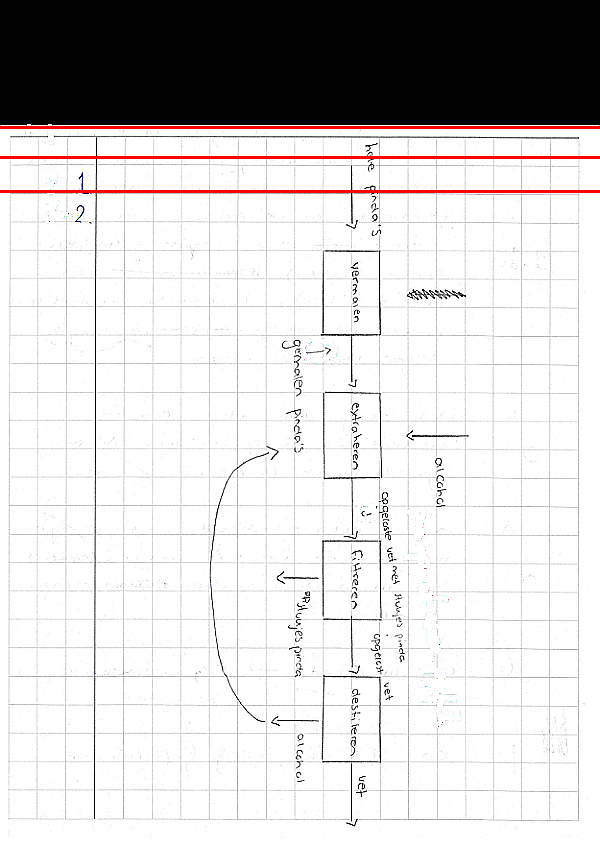 1
2.
hele pinda's
vermalen
gemalen pinda's
extraheren
alcohol
opgeloste vet met stukjes pinda
filtreren
stukjes pinda
opgelost vet
destilleren
alcohol
vet